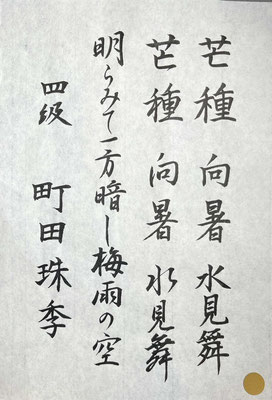 芒種 向暑 水見舞
芒種 向暑 水見舞
明らみて一方暗し梅雨の空
四級 町田珠季